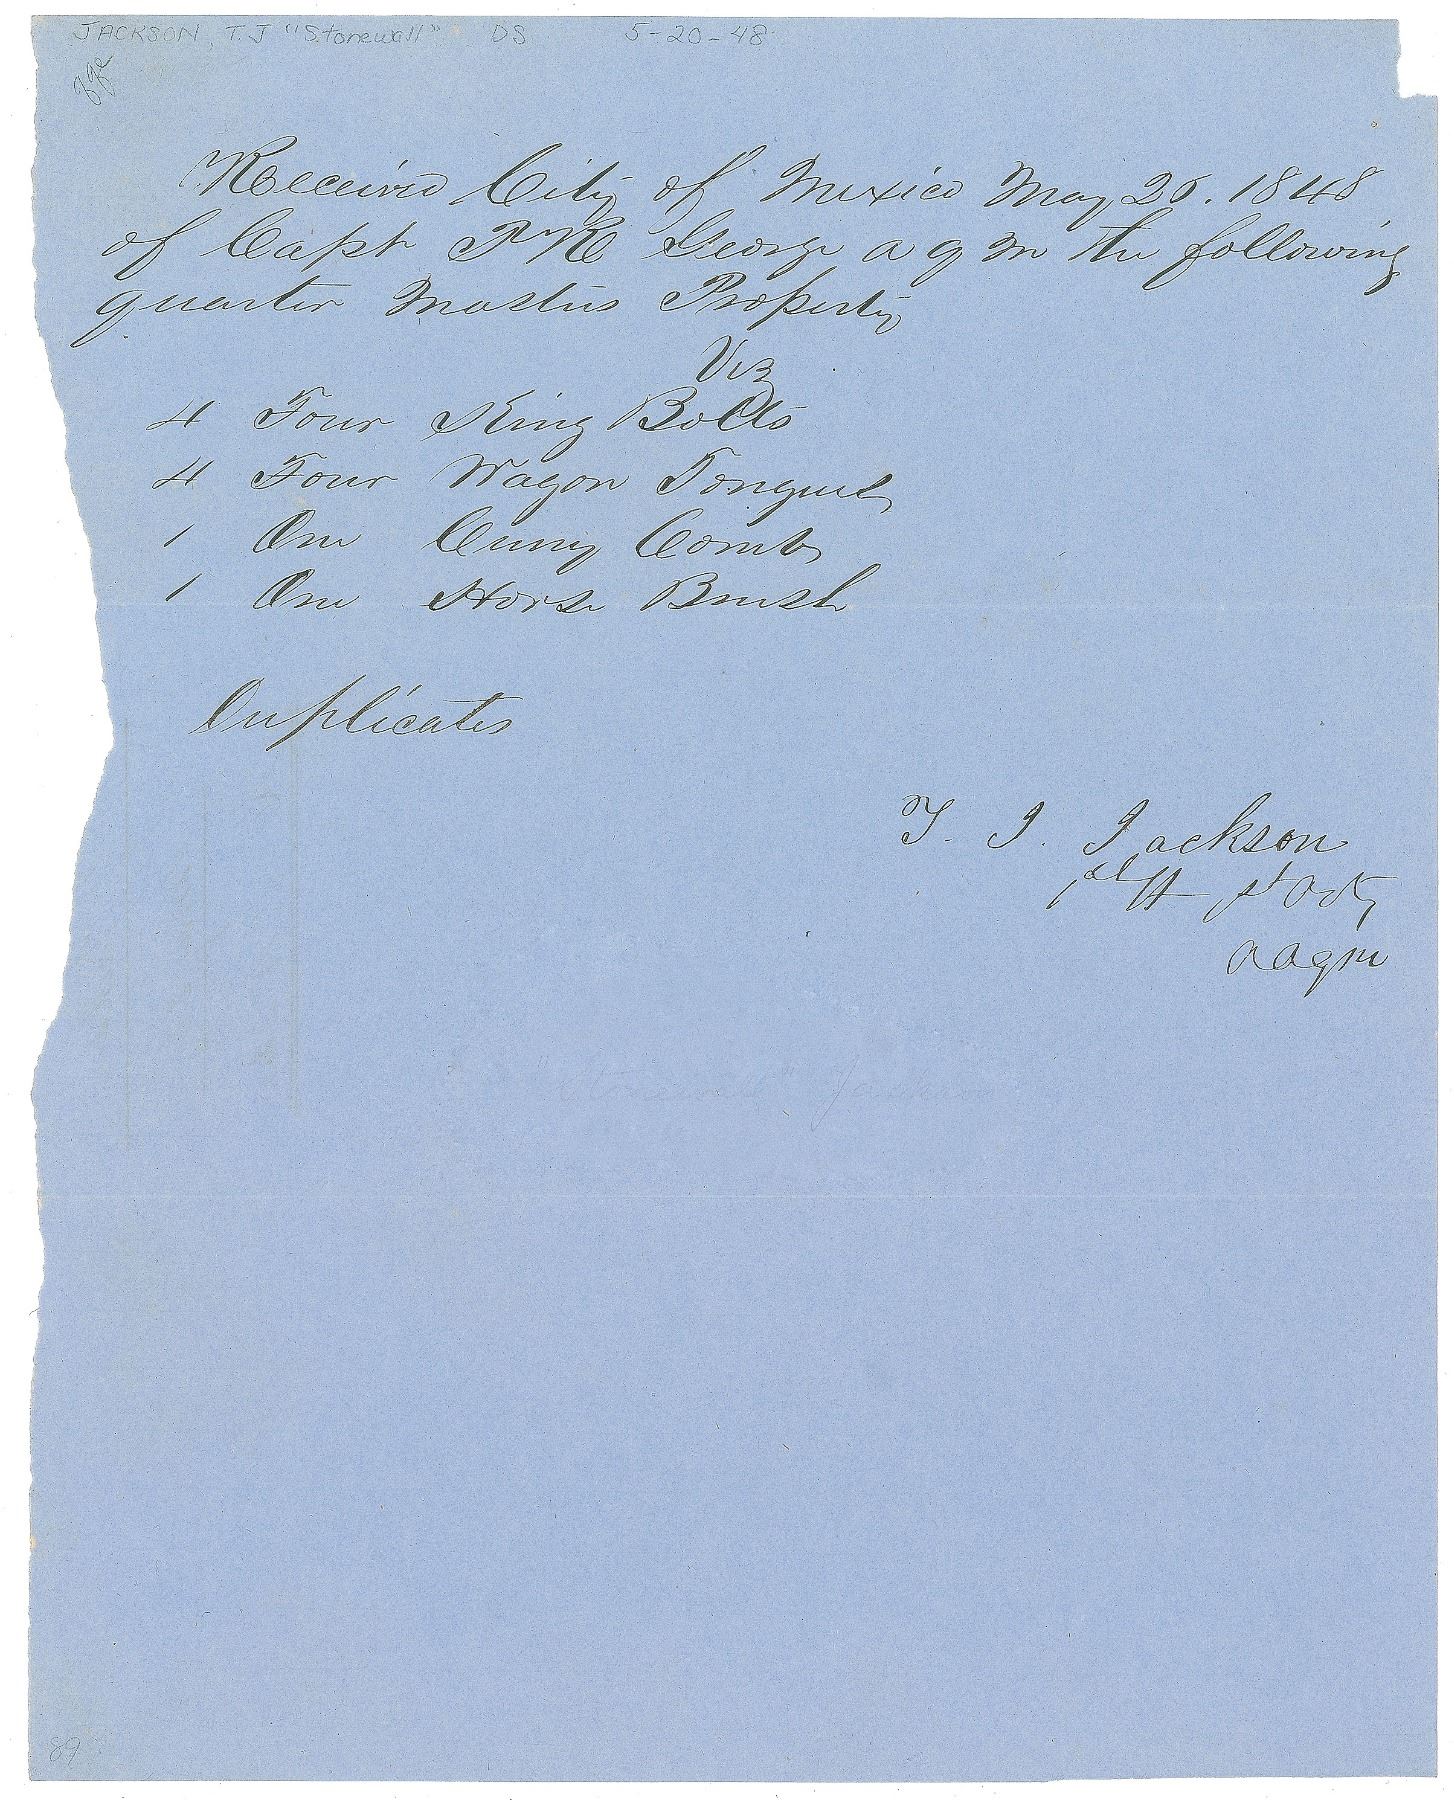 JACKSON, T.J "Stonewall" DS 5-20-48
Received City of Mexico May 20. 1848
of Capt P K George a q m the following
quarter Masters Property
Viz
4 Four King Bolts
4 Four Wagon Tongues
1 One Curry Comb
1 One Horse Brush
Duplicates
T. J. Jackson
1st Lt 1st Arty
aaqm
"Stonewall" Jackson
89